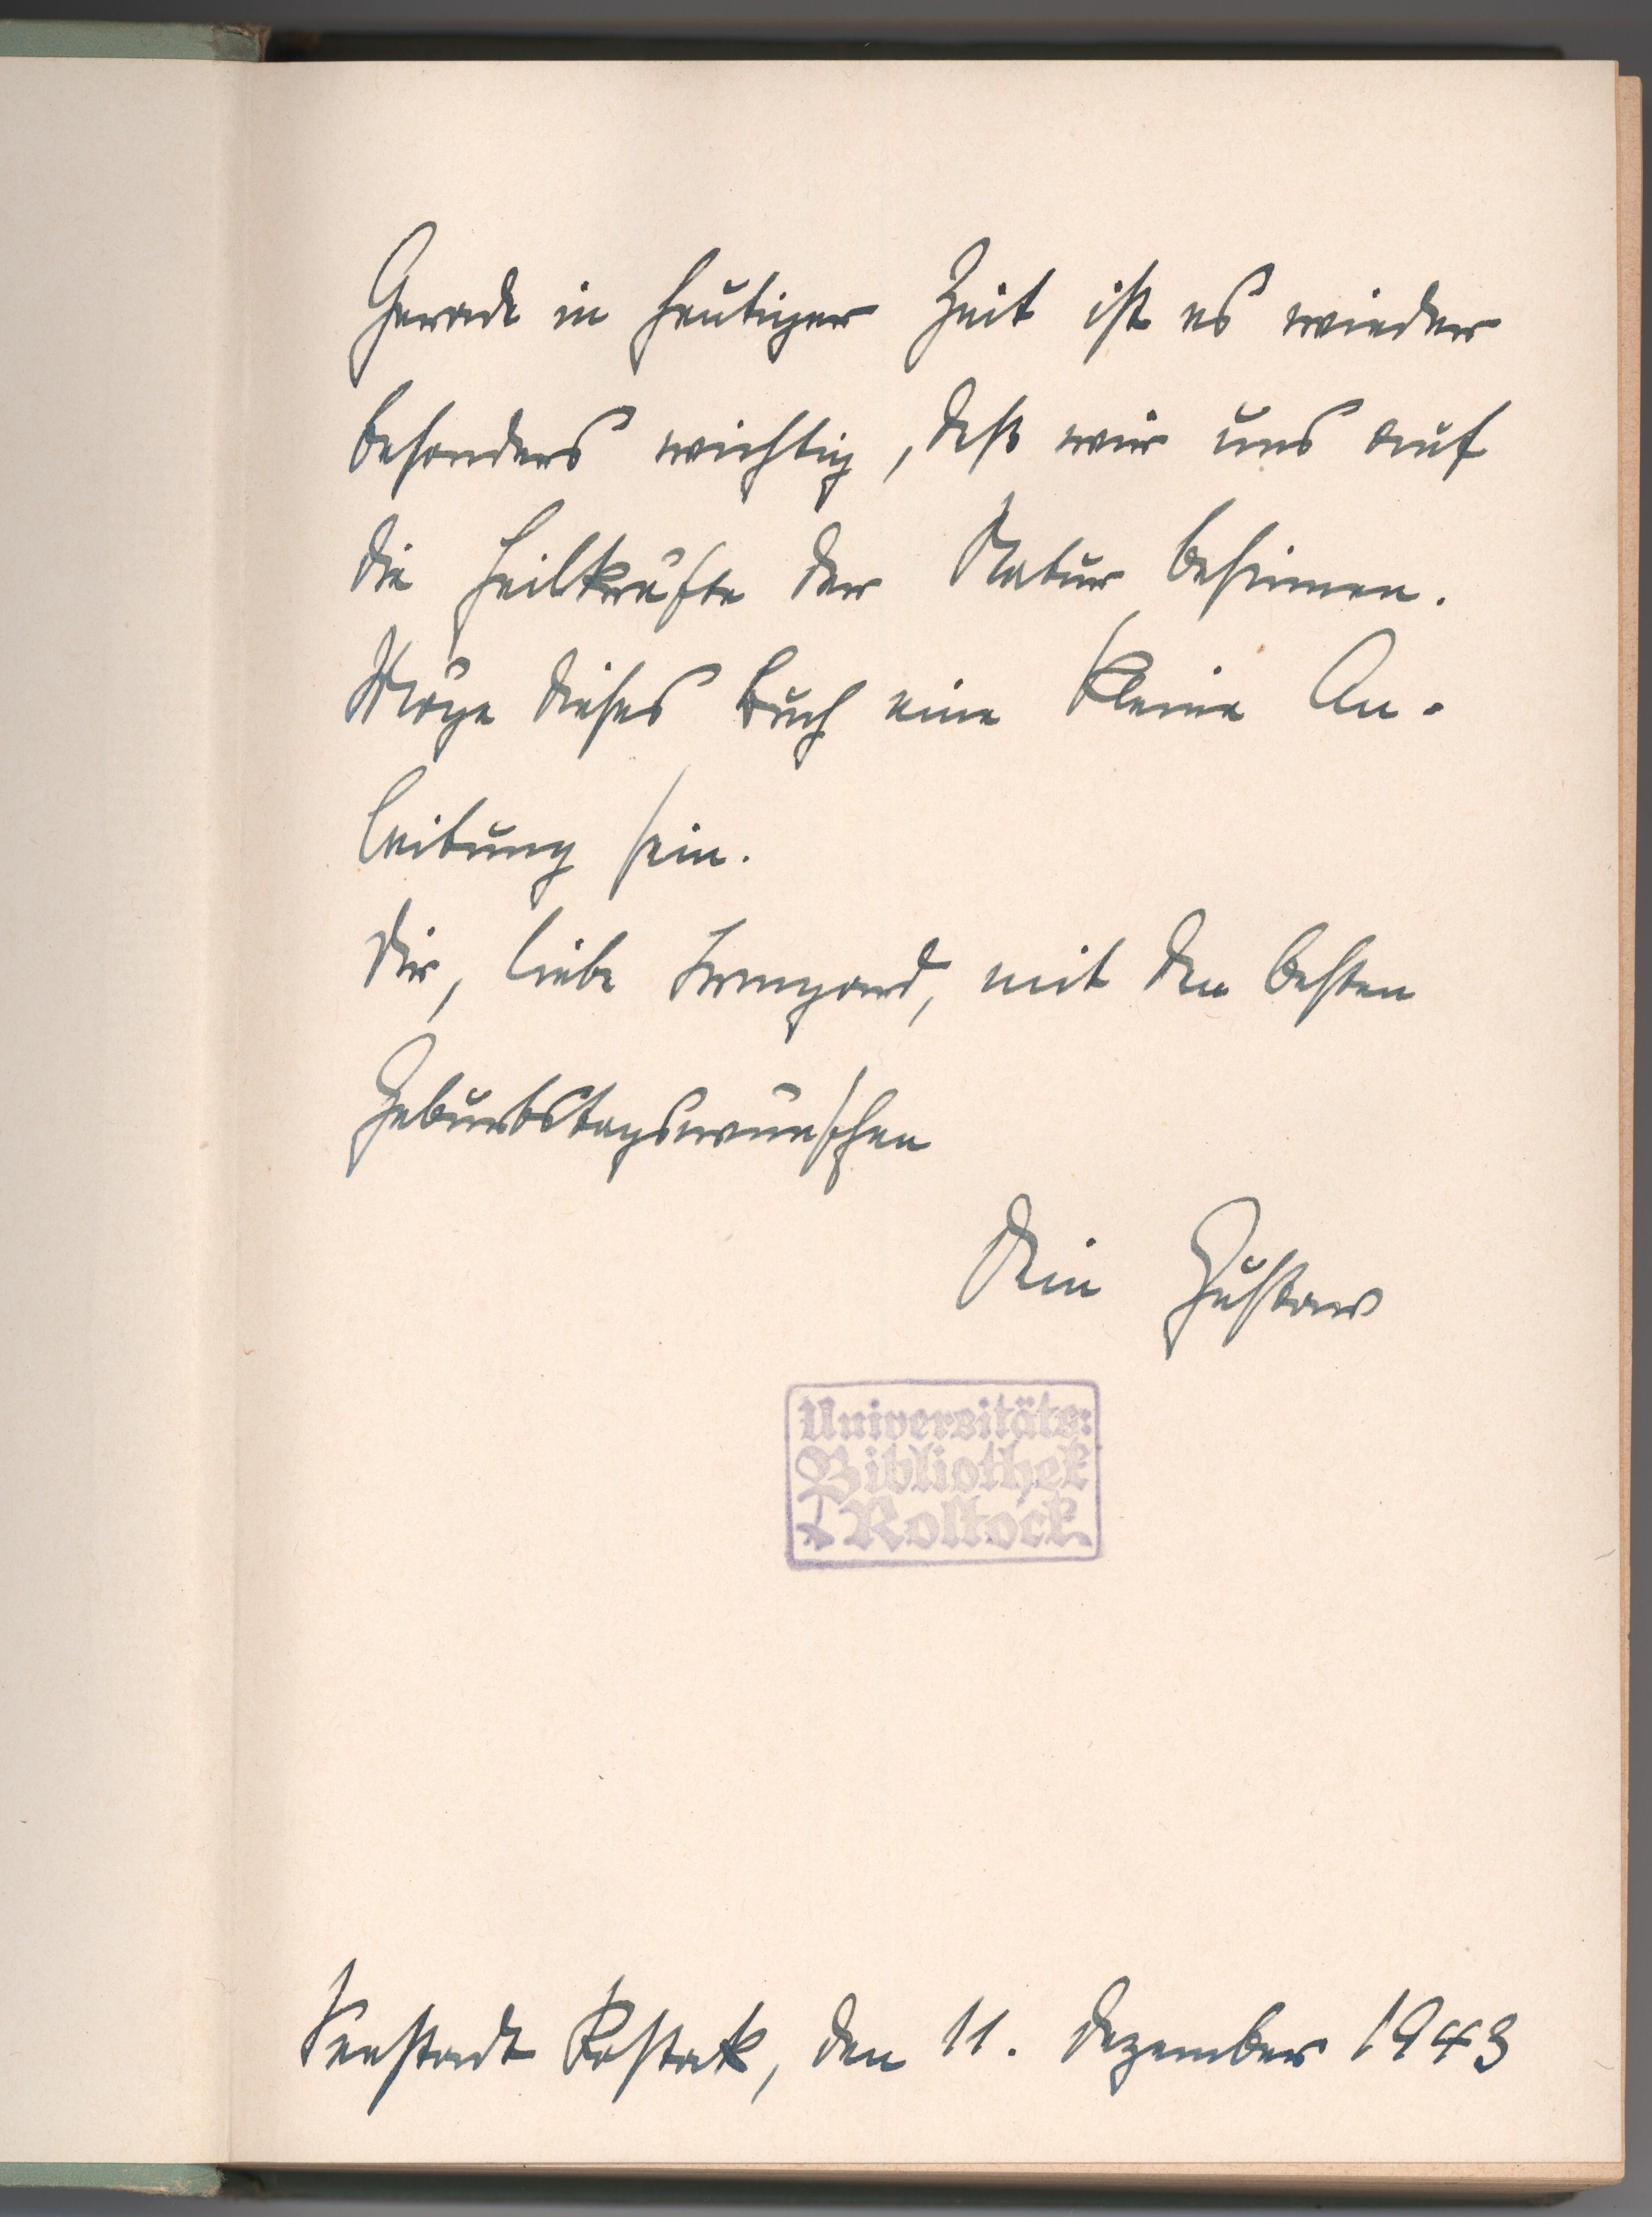 Gerade in heutiger Zeit ist es wieder
besonders wichtig, daß wir uns auf
die Heilkräfte der Natur besinnen.
Möge dieses Buch eine kleine An-
leitung sein.
Dir, liebe Irmgard, mit den besten
Geburtstagswünschen
Dein Gustav
Universitäts-
Bibliothek
Rostock
Seestadt Rostock, den 11. Dezember 1943